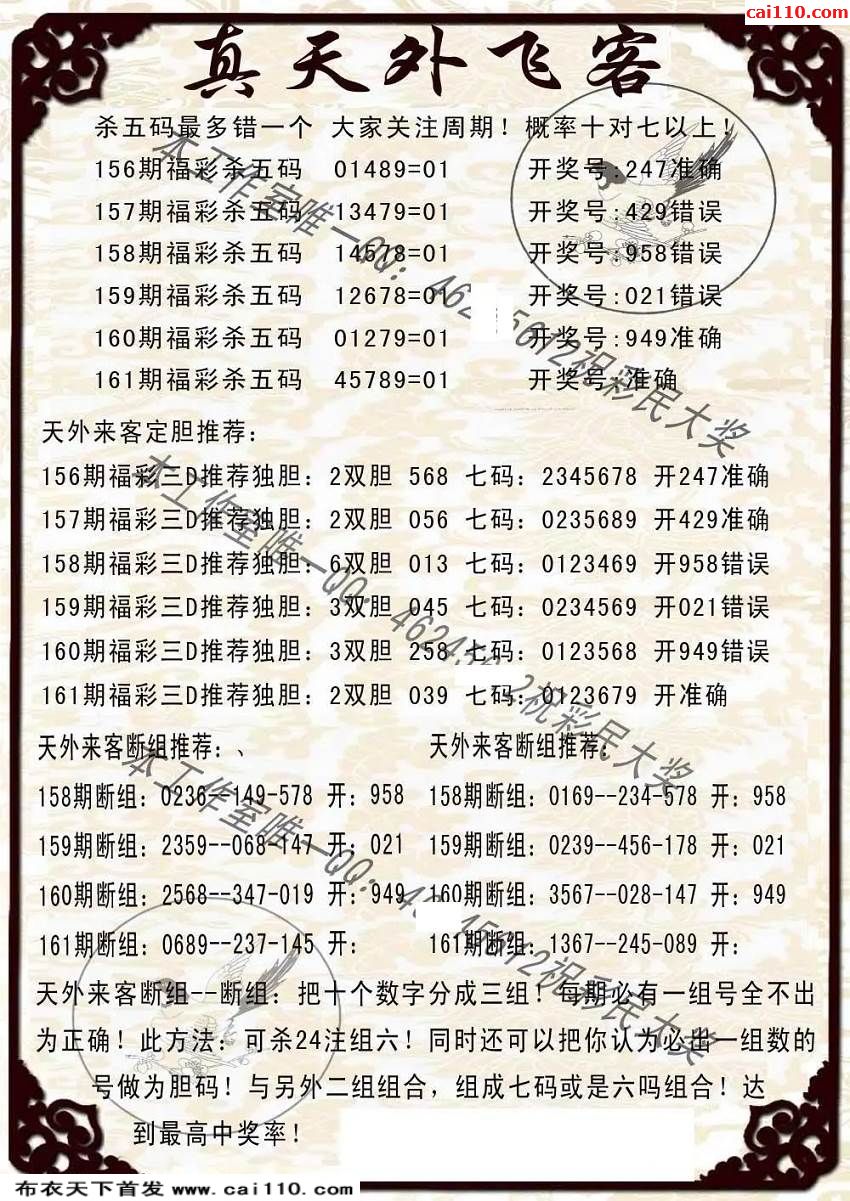 cai110.com
真天外飞客
杀五码最多错一个 大家关注周期！概率十对七以上！
156期福彩杀五码 01489=01 开奖号:247准确
157期福彩杀五码 13479=01 开奖号:429错误
158期福彩杀五码 14578=01 开奖号:958错误
159期福彩杀五码 12678=01 开奖号:021错误
160期福彩杀五码 01279=01 开奖号:949准确
161期福彩杀五码 45789=01 开奖号:准确
天外来客定胆推荐：
156期福彩三D推荐独胆：2双胆 568 七码：2345678 开247准确
157期福彩三D推荐独胆：2双胆 056 七码：0235689 开429准确
158期福彩三D推荐独胆：6双胆 013 七码：0123469 开958错误
159期福彩三D推荐独胆：3双胆 045 七码：0234569 开021错误
160期福彩三D推荐独胆：3双胆 258 七码：0123568 开949错误
161期福彩三D推荐独胆：2双胆 039 七码：0123679 开准确
天外来客断组推荐：、 天外来客断组推荐：
158期断组：0236--149-578 开：958 158期断组：0169--234-578 开：958
159期断组：2359--068-147 开：021 159期断组：0239--456-178 开：021
160期断组：2568--347-019 开：949 160期断组：3567--028-147 开：949
161期断组：0689--237-145 开： 161期断组：1367--245-089 开：
天外来客断组--断组：把十个数字分成三组！每期必有一组号全不出
为正确！此方法：可杀24注组六！同时还可以把你认为必出一组数的
号做为胆码！与另外二组组合，组成七码或是六吗组合！达
到最高中奖率！
本工作室唯一QQ：
祝彩民大奖
本工作室唯一QQ：
祝彩民大奖
本工作室唯一QQ：
祝彩民大奖
布衣天下首发 www.cai110.com